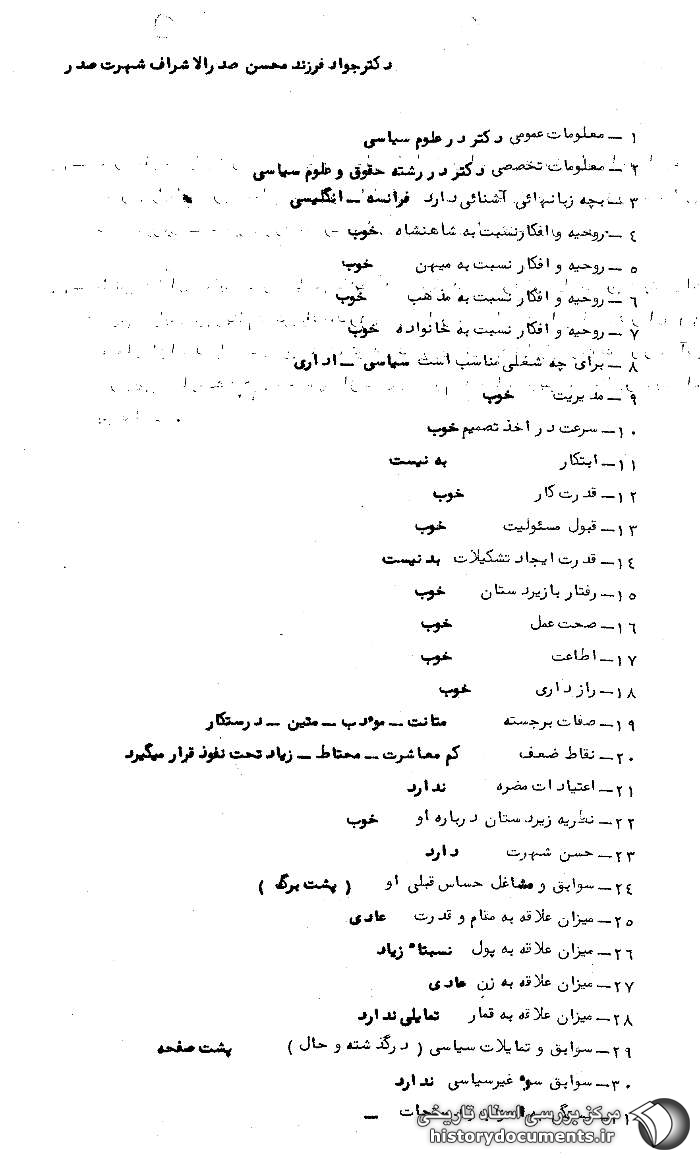 دکترجواد فرزند محسن صدرالاشراف شهرت صدر
۱ – معلومات عمومی دکتر در علوم سیاسی
۲ – معلومات تخصصی دکتر در رشته حقوق و علوم سیاسی
۳ – بچه زبانهائی آشنائی دارد فرانسه – انگلیسی
٤ – روحیه و افکار نسبت به شاهنشاه خوب
٥ – روحیه و افکار نسبت به میهن خوب
٦ – روحیه و افکار نسبت به مذهب خوب
۷ – روحیه و افکار نسبت به خانواده خوب
۸ – برای چه شغلی مناسب است سیاسی – اداری
۹ – مدیریت خوب
۱۰ – سرعت در اخذ تصمیم خوب
۱۱ – ابتکار به نیست
۱۲ – قدرت کار خوب
۱۳ – قبول مسئولیت خوب
۱٤ – قدرت ایجاد تشکیلات بد نیست
۱٥ – رفتار بازیردستان خوب
۱٦ – صحت عمل خوب
۱۷ – اطاعت خوب
۱۸ – رازداری خوب
۱۹ – صفات برجسته متانت – مودب – متین – درستکار
۲۰ – نقاط ضعف کم معاشرت – محتاط – زیاد تحت نفوذ قرار میگیرد
۲۱ – اعتیادات مضره ندارد
۲۲ – نظریه زیردستان درباره او خوب
۲۳ – حسن شهرت دارد
۲٤ – سوابق و مشاغل حساس قبلی او ( پشت برگ )
۲٥ – میزان علاقه به مقام و قدرت عادی
۲٦ – میزان علاقه به پول نسبتاً زیاد
۲۷ – میزان علاقه به زن عادی
۲۸ – میزان علاقه به قمار تمایلی ندارد
۲۹ – سوابق و تمایلات سیاسی ( درگذشته و حال ) پشت صفحه
۳۰ – سوابق سوء غیرسیاسی ندارد
مرکز بررسی اسناد تاریخی
historydocuments.ir